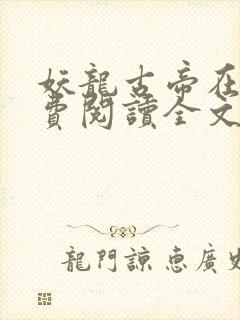 妖龍古帝在
費閱讀全文
龍門諒惠廣